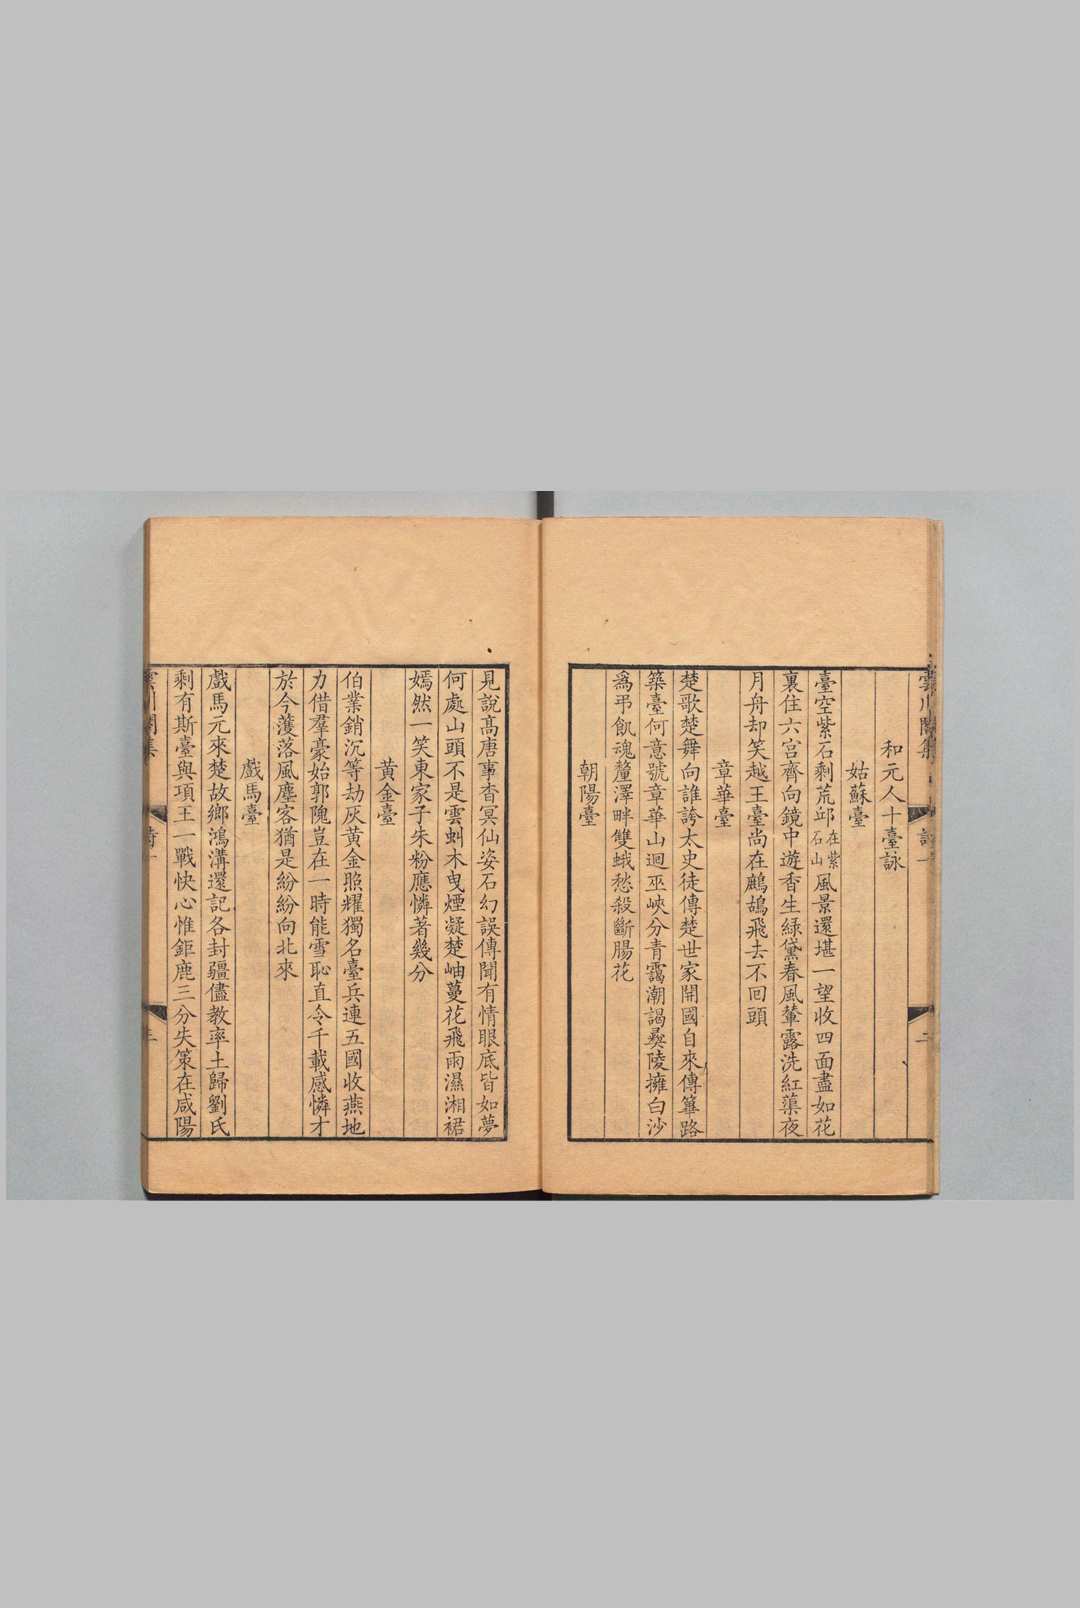 和元人十臺詠
姑蘇臺
臺空紫石剩荒邱在紫石山風景還堪一望收四面盡如花
裏住六宮齊向鏡中遊香生綠黛春風輦露洗紅蕖夜
月舟却笑越王臺尚在鷓鴣飛去不回頭
章華臺
楚歌楚舞向誰誇太史徒傳楚世家開國自來傳篳路
築臺何意號章華山迴巫峽分青靄潮謁彝陵擁白沙
爲弔飢魂釐澤畔雙蛾愁殺斷腸花
朝陽臺
見說高唐事杳冥仙姿石幻誤傳聞有情眼底皆如夢
何處山頭不是雲虯木曳煙凝楚岫蔓花飛雨濕湘裙
嫣然一笑東家子朱粉應憐著幾分
黃金臺
伯業銷沉等劫灰黃金照耀獨名臺兵連五國收燕地
力借羣豪始郭隗豈在一時能雪恥直令千載感憐才
於今濩落風塵客猶是紛紛向北來
戲馬臺
戲馬元來楚故鄉鴻溝還記各封疆儘教率土歸劉氏
剩有斯臺與項王一戰快心惟鉅鹿三分失策在咸陽